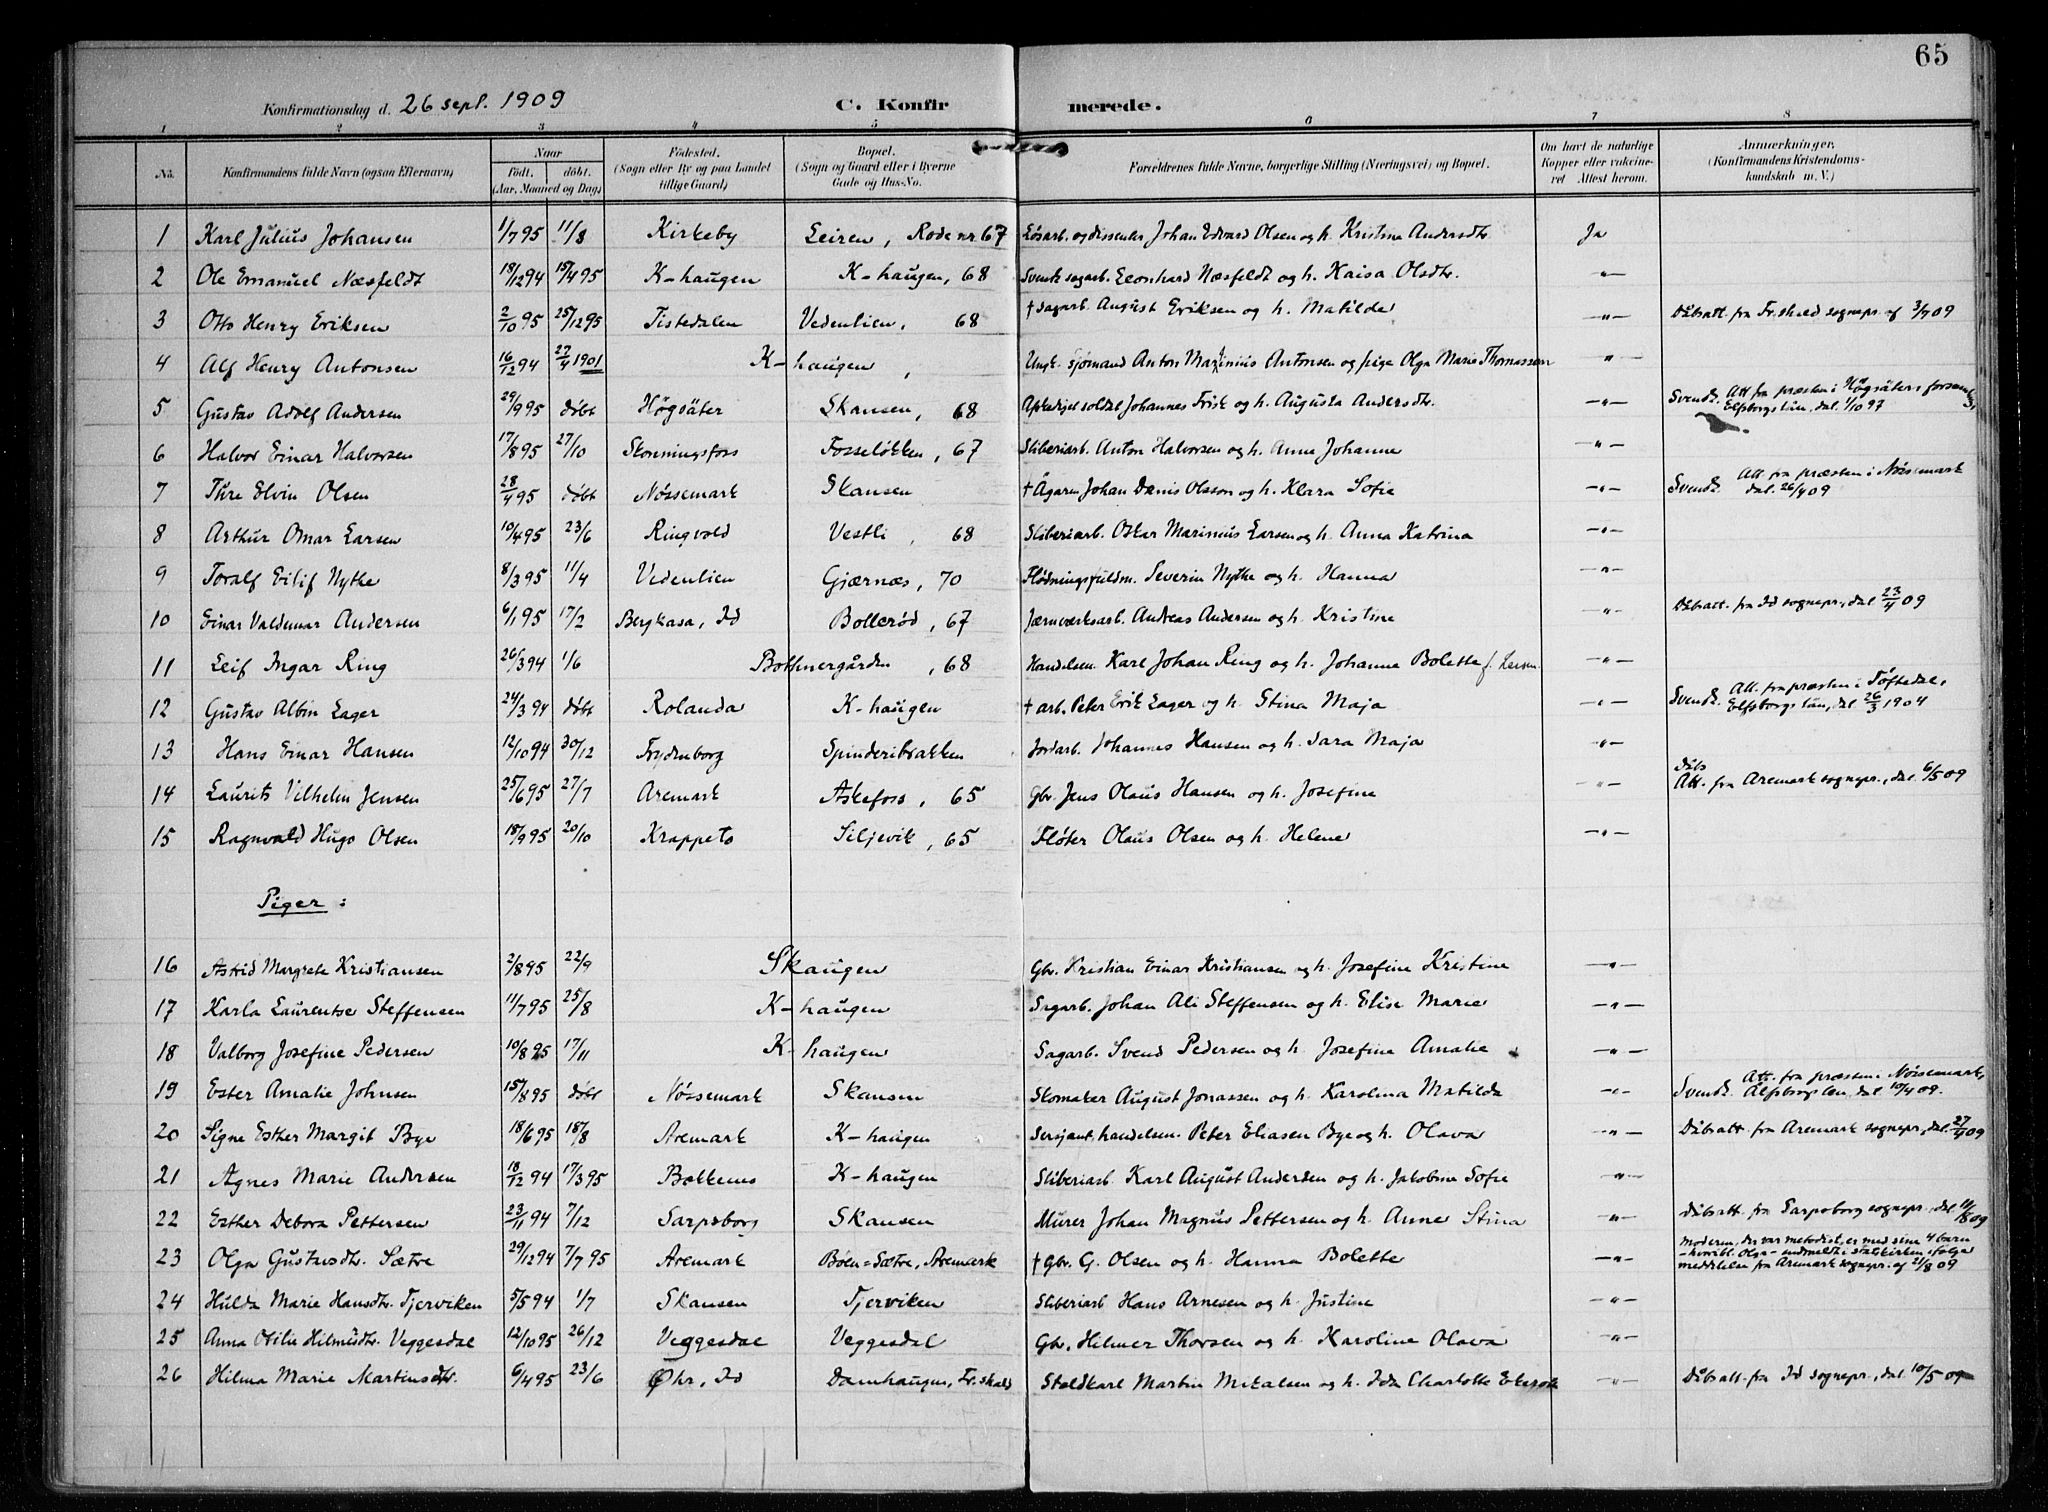 65
Konfirmationsdag d. 26 sept. 1909 C. Konfirmerede.
1 2 3 4 5 6 7 8
No. Konfirmandens fulde Navn (ogsaa Efternavn) Naar født. døbt. (Aar, Maaned og Dag) Fødested. (Sogn eller By og paa Landet tillige Gaard) Bopæl. (Sogn og Gaard eller i Byerne Gade og Hus-No. Forældrenes fulde Navne, borgerlige Stilling (Næringsvei) og Bopæl. Om havt de naturlige Kopper eller vakcineret Attest herom. Anmerkninger, (Konfirmandens Kristendomskundskab m. V.)
1 Karl Julius Johansen 1/7 95 11/8 Kirkeby Leiren, Rode nr. 67 Løsarb. og dissenter Johan Edvard Olsen og h. Kristine Andersdtr. Ja
2 Ole Emanuel Næsfeldt 18/12 94 15/4 95 K-haugen K-haugen, 68 Svensk sagarb. Leonhard Næsfeldt og h. Kaisa Olsdtr. -"-
3 Otto Henry Eriksen 2/10 95 25/12 95 Tistedalen Vedenlien, 68 † Sagarb. August Eriksen og h. Matilde -"- Dåbsatt. fra Fr.shald sognepr. af 3/7 09
4 Alf Henry Antonsen 16/12 94 27/4 1901 K-haugen, Ungk. sjømand Anton Maximius Antonsen og pige Olga Marie Thomassen -"-
5 Gustav Adolf Andersen 29/9 95 døbt Högsäter Skansen, 68 soldat Johannes Frisk og h. Augusta Andersdtr. -"- Svensk. Att. fra præsten i Högsäters forsamling, Elfsborgs län, dat. 1/10 97
6 Halvor Einar Halvorsen 17/8 95 27/10 Skonningsfoss Fosseløkken, 67 Sliberiarb. Anton Halvorsen og h. Anna Johanne -"-
7 Thre Elvin Olsen 28/4 95 døbt Nössemark Skansen † Ägaren Johan Denis Olsson og h. Klara Sofie -"- Svensk. Att. fra præsten i Nössemark dat. 26/4 09
8 Arthur Omar Larsen 10/4 95 23/6 Ringvold Vestli, 68 Sliberiarb. Oskar Marinius Larsen og h. Anna Katrina -"-
9 Toralf Eilif Nythe 8/3 95 11/4 Vedenlien Gjærnæs, 70 Flødningsfuldm. Severin Nythe og h. Hanna -"-
10 Einar Valdemar Andersen 6/1 95 17/2 Bergkasa, Id Bollerød, 67 Jærnverksarb. Andreas Andersen og h. Kristine -"- Dåbsatt. fra Id sognepr., dat. 23/4 09
11 Leif Ingar Ring 26/3 94 1/6 Bothnergården, 68 Handelsm. Karl Johan Ring og h. Johanne Bolette f. Larsen -"-
12 Gustav Albin Lager 24/3 94 døbt Rolanda K-haugen † arb. Peter Erik Lager og h. Stina Maja -"- Svensk. Att. fra præsten i Töftedal, Elfsborgs län, dat. 26/3 1904
13 Hans Einar Hansen 12/10 94 30/12 Frydenborg Spinderibakken Jordarb. Johannes Hansen og h. Sara Maja -"-
14 Laurits Vilhelm Jensen 25/6 95 27/7 Aremark Askefoss, 65 Gbr. Jens Olaus Hansen og h. Josefine -"- Dåbs Att. fra Aremark sognepr., dat. 6/5 09
15 Ragnvald Hugo Olsen 18/9 95 20/10 Krappeto Siljevik, 65 Fløter Olaus Olsen og h. Helene -"-
Piger:
16 Astrid Margrete Kristiansen 2/8 95 22/9 Skaugen Gbr. Kristian Einar Kristiansen og h. Josefine Kristine -"-
17 Karla Laurentse Steffensen 11/7 95 25/8 K-haugen Sagarb. Johan Ali Steffensen og h. Elise Marie -"-
18 Valborg Josefine Pedersen 10/8 95 17/11 K-haugen Sagarb. Svend Pedersen og h. Josefine Amalie -"-
19 Ester Amalie Johnsen 15/8 95 døbt Nössemark Skansen Skomaker August Jonassen og h. Karolina Matilda -"- Svensk. Att. fra præsten i Nössemark, Älfsborgs len, dat. 10/4 09.
20 Signe Esther Margit Bye 18/6 95 18/8 Aremark K-haugen Sersjant, handelsm. Peter Eliasen Bye og h. Olava -"- Dåbsatt. fra Aremark sognepr., dat. 27/4 09
21 Agnes Marie Andersen 18/12 94 17/3 95 Bakkenes K-haugen Sliberiarb. Karl August Andersen og h. Jakobine Sofie -"-
22 Esther Debora Pettersen 23/11 94 7/12 Sarpsborg Skansen Murer Johan Magnus Pettersen og h. Anne Stina -"- Dåbsatt. fra Sarpsborg sognepr., dat. 11/8 09
23 Olga Gustavsdtr. Sætre 29/12 94 7/7 95 Aremark Bøen=Sætre, Aremark † Gbr. G. Olsen og h. Hanna Bolette -"- Moderen, der var metodist, er med sine 4 barn - hvoribl. Olga - indmeldt i statskirken ifølge meddelelse fra Aremark sognepr. af 21/8 09
24 Hulda Marie Hansdtr. Tjerviken 5/5 94 1/7 Skansen Tjerviken Sliberiarb Hans Arnesen og h. Justine -"-
25 Anna Otilie Hilmersdtr. Veggesdal 12/10 95 26/12 Veggesdal Veggesdal Gbr. Hilmer Thorsen og h. Karoline Olava -"-
26 Hilma Marie Martinsdtr. 6/4 95 23/6 Øhr, Id Damhaugen, Fr.shald Staldkarl Martin Mikalsen og h. Ida Charlotte -"- Dåbsatt. fra Id sognepr., dat. 10/5 09